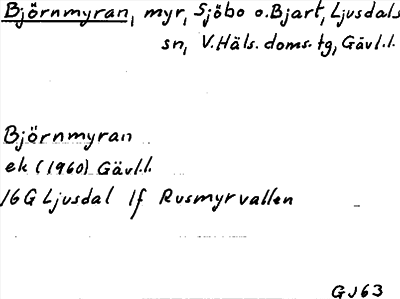 Björnmyran, myr, Sjöbo o. Bjart, Ljusdals
sn, V. Häls. doms. tg, Gävl.l.
Björnmyran
ek (1960) Gävl.l.
16 G Ljusdal 1f Rusmyrvallen
GJ63